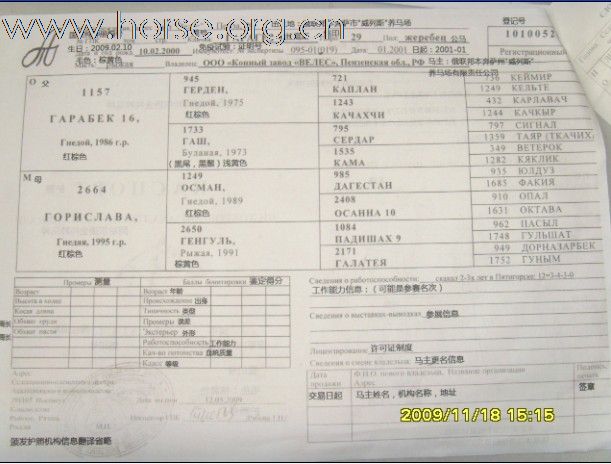 www.horse.org.cn
地: 俄联邦本萨州"威列斯"养马场
登记号
29 Пол жеребец 公马
1010052
Регистрационный
生日:2009.02.10
10.02.2000
免疫试验:证明号
экспертизы 095-01(019) Дата 01.2001 日起:2001-01
毛色:棕黄色
рыжая Владелец ООО «Конный завод «ВЕЛЕС», Пензенская обл., РФ
马主:俄联邦本奔萨州"威列斯"
养马场有限责任公司
О 父
1157
ГАРАБЕК 16,
Гнедой, 1986 г.р.
红棕色
945
ГЕРДЕН,
Гнедой, 1975
红棕色
1733
ГАШ,
Буланая, 1973
(黑尾,黑鬃)浅黄色
721
КАПЛАН
1243
КАЧАХЧИ
795
СЕРДАР
1535
КАМА
736 КЕЙМИР
1249 КЕЛЬТЕ
432 КАРЛАВАЧ
1244 КАЧКЫР
797 СИГНАЛ
1359 ТАЯР (ТКАЧИХ
349 ВЕТЕРОК
1282 КЯКЛИК
М 母
2664
ГОРИСЛАВА,
Гнедая, 1995 г.р.
红棕色
1249
ОСМАН,
Гнедой, 1989
红棕色
2650
ГЕНГУЛЬ,
Рыжая, 1991
棕黄色
985
ДАГЕСТАН
2408
ОСАННА 10
1084
ПАДИШАХ 9
2171
ГАЛАТЕЯ
935 ЮЛДУЗ
1685 ФАКИЯ
910 ОПАЛ
1631 ОКТАВА
962 ПАСЫЛ
1748 ГУЛЬШАТ
949 ДОРНАЗАРБЕК
1752 ГУНЫМ
Промеры 测量
Баллы бонитировки 鉴定得分
Возраст
Высота в холке
Косая длина
Обхват груди
Обхват пясти
Возраст 年龄
Происхождение 出身
Типичность 类型
Промеры 误差
Экстерьер 外形
Работоспособность 工作能力
Кач-во потомства 血响质量
Класс 等级
Сведения о работоспособности: скакал 2-3х лет в Пятигорске: 12=3-4-3-0
工作能力信息:(可能是参赛名次)
Сведения о выставках-выводках 参展信息
Лицензирование 许可证制度
Сведения о смене владельца: 马主更名信息
Дата продажи
Ф.И.О. нового владельца, Название организации
Адрес
Подпись, печать
交易日起
马主姓名,机构名称,地址
签章
Адрес
12.05.2009
М.П.
颁发护照机构信息翻译省略
2009/11/18 15:15